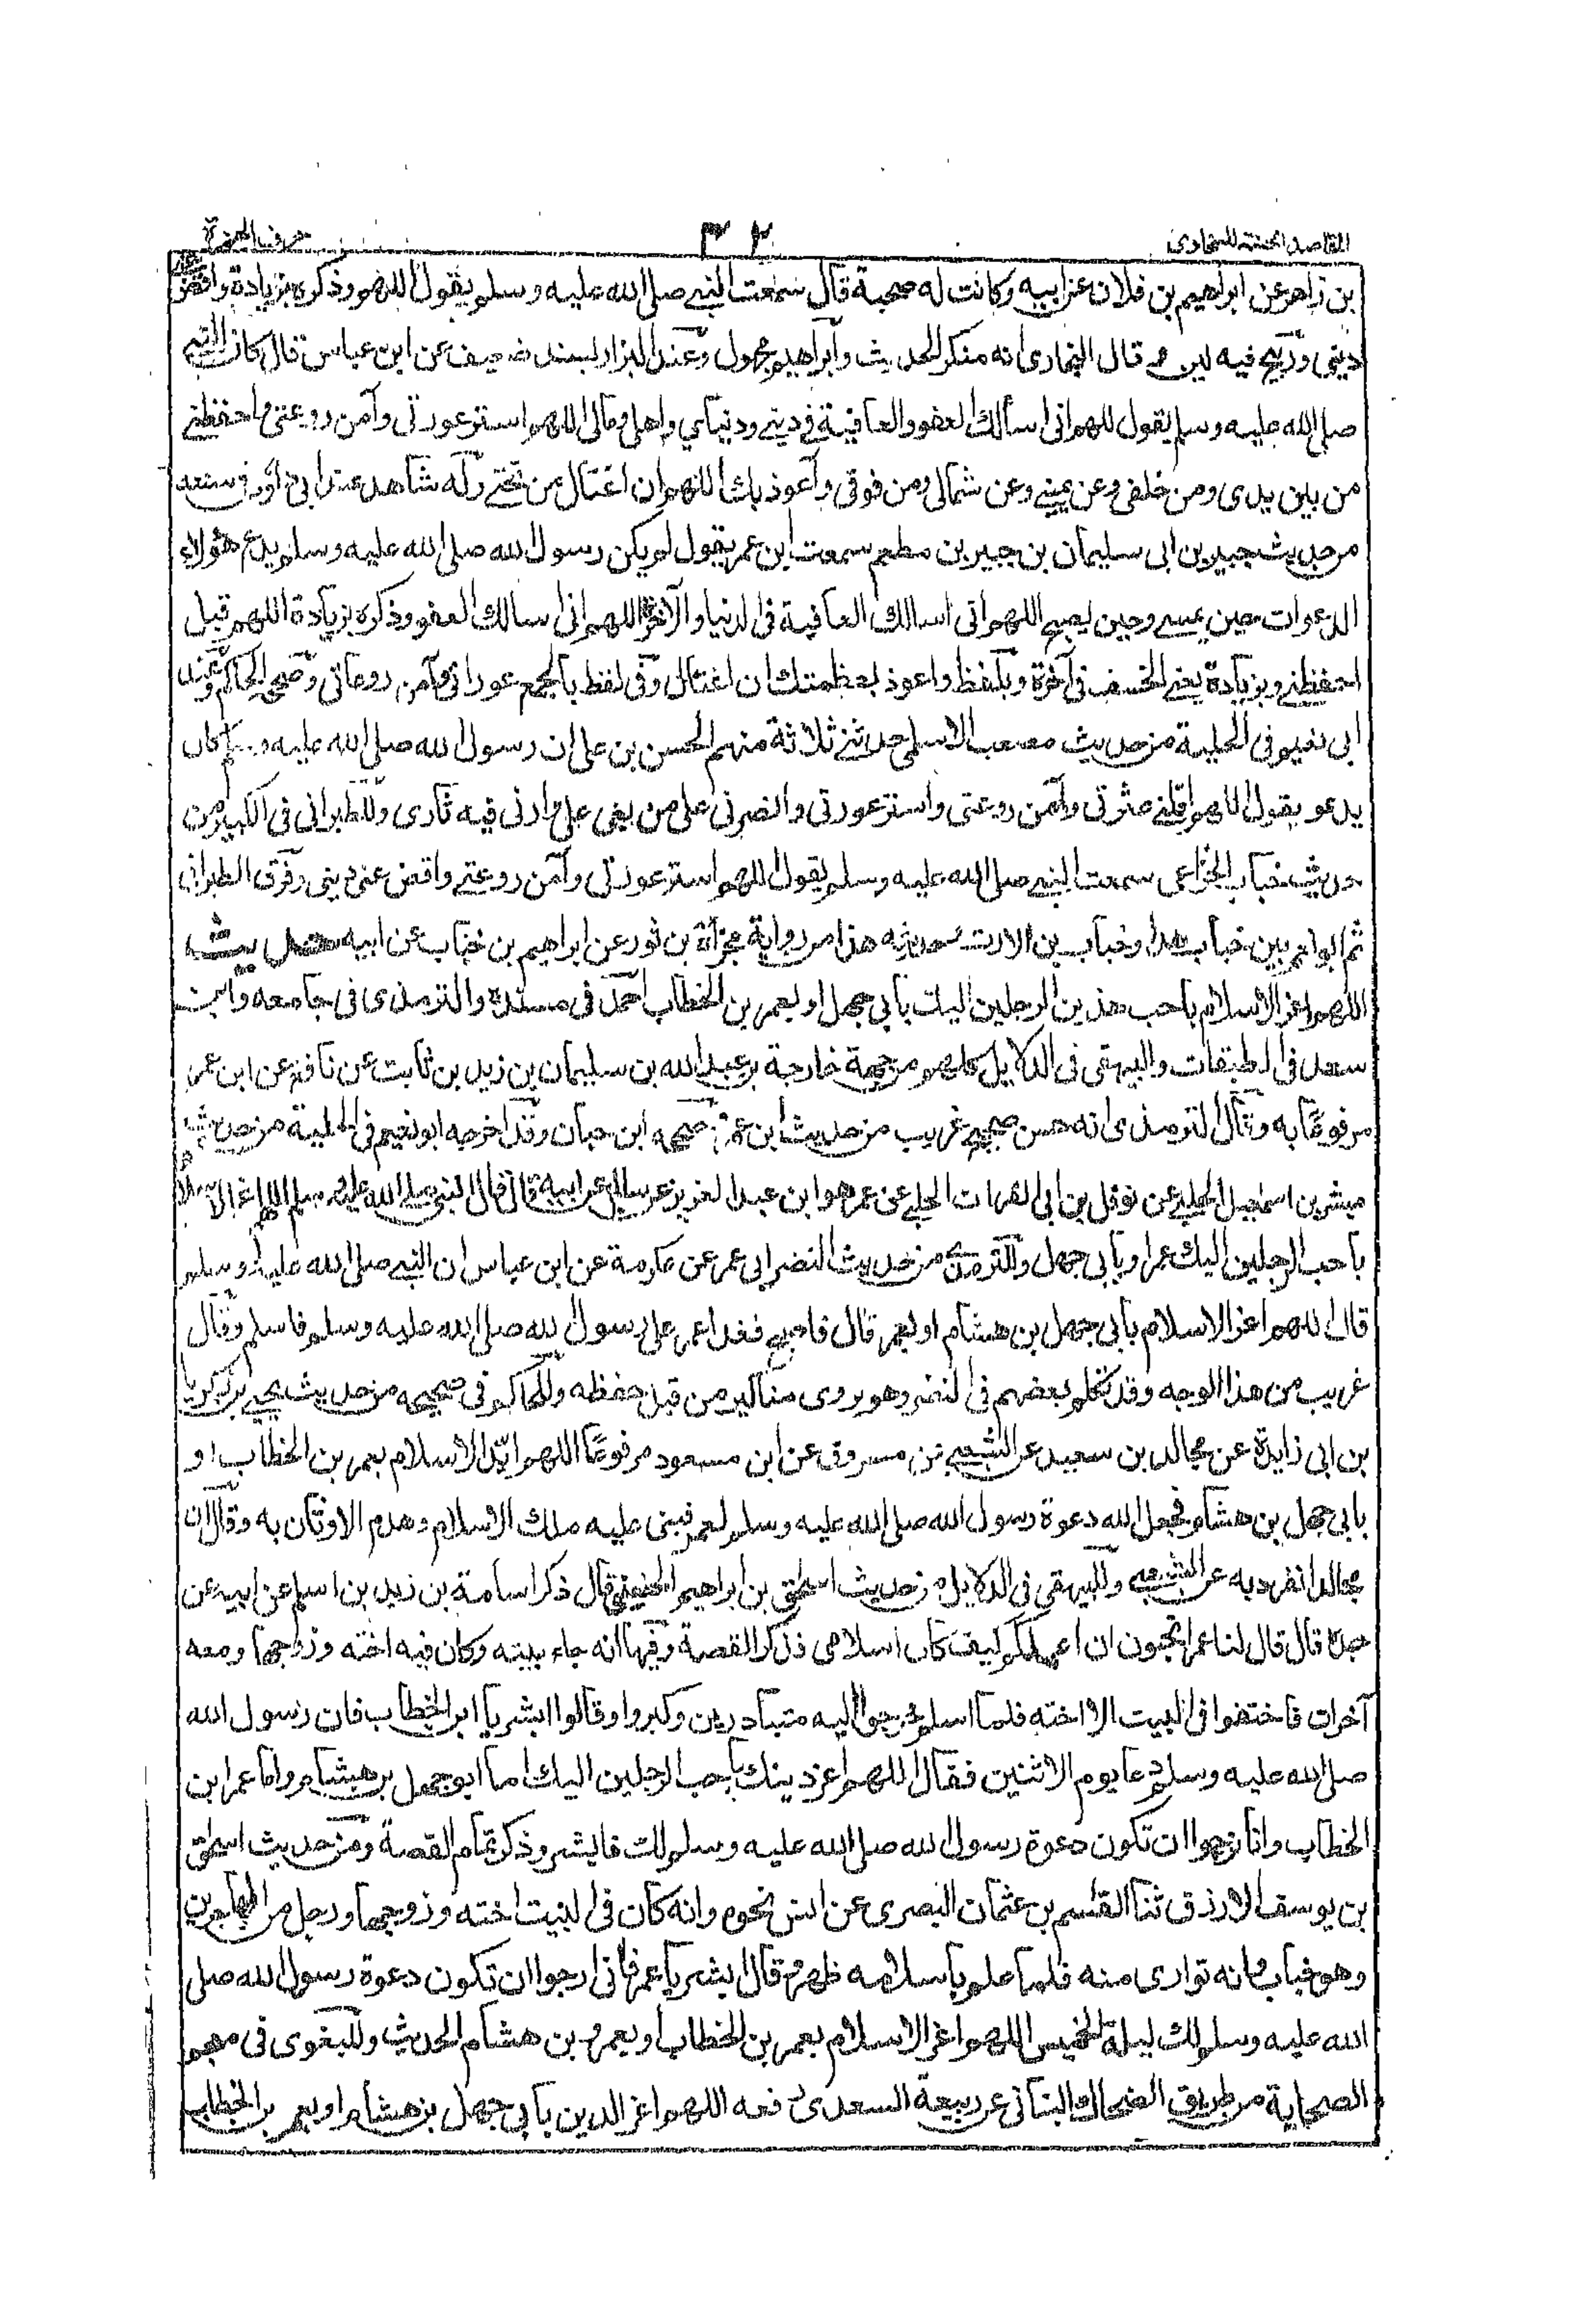 المقاصد الحسنة للسخاوى
٣٢
حرف الهمزة
بن زاهر عن ابراهيم بن فلان عن ابيه وكانت له صحبة قال سمعت النبي صلى الله عليه وسلم يقول اللهم وذكره بزيادة واقض
دينى وربيح فيه لين قال البخارى انه منكر الحديث وابراهيم مجهول وعند البزار بسند ضعيف عن ابن عباس قال كان النبي
صلى الله عليه وسلم يقول اللهم انى اسألك العفو والعافية فى دينى ودنياى واهلى ومالى اللهم استر عورتى وآمن روعتى واحفظنى
من بين يدى ومن خلفى وعن يمينى وعن شمالى ومن فوقى واعوذ بك اللهم ان اغتال من تحتى وله شاهد عند ابى داود فى سننه
من حديث جبير بن ابى سليمان بن جبير بن مطعم سمعت ابن عمر يقول لم يكن رسول الله صلى الله عليه وسلم يدع هؤلاء
الدعوات حين يمسى وحين يصبح اللهم انى اسالك العافية فى الدنيا والآخرة اللهم انى اسالك العفو وذكره بزيادة اللهم قبل
احفظنى وبزيادة يعنى الخسف فى آخرة وبلفظ واعوذ بعظمتك ان اغتال وفى لفظ بالجمع عوراتى وآمن روعاتى وصححه الحاكم وعند
ابى نعيم فى الحلية من حديث مصعب الاسلمى حدثنى ثلاثة منهم الحسن بن على ان رسول الله صلى الله عليه وسلم كان
يدعو يقول اللهم اقلنى عثرتى وآمن روعتى واستر عورتى وانصرنى على من بغى على وارنى فيه ثارى وللطبرانى فى الكبير من
حديث خباب الخزاعى سمعت النبي صلى الله عليه وسلم يقول اللهم استر عورتى وآمن روعتى واقض عنى دينى وفرق الطبرانى
ثم ابو نعيم بين خباب هذا وخباب بن الارت بحديثه هذا من رواية مجزأة بن ثور عن ابراهيم بن خباب عن ابيه حديث
اللهم اعز الاسلام باحب هذين الرجلين اليك بابى جهل او بعمر بن الخطاب احمد فى مسنده والترمذى فى جامعه وابن
سعد فى الطبقات والبيهقى فى الدلايل كلهم من جهة خارجة بن عبد الله بن سليمان بن زيد بن ثابت عن نافع عن ابن عمر
مرفوعًا به وقال الترمذى انه حسن صحيح غريب من حديث ابن عمر وصححه ابن حبان وقد اخرجه ابو نعيم فى الحلية من حديث
مبشر بن اسمعيل الحلبى عن نوفل بن ابى الفرات الحلبى عن عمر هو ابن عبد العزيز عن سالم عن ابيه قال قال النبى صلى الله عليه وسلم اللهم اعز الاسلام
باحب الرجلين اليك عمر او بابى جهل والترمذى من حديث النضر ابى عمر عن عكرمة عن ابن عباس ان النبى صلى الله عليه وسلم
قال اللهم اعز الاسلام بابى جهل بن هشام او بعمر قال فاصبح فغدا عمر على رسول الله صلى الله عليه وسلم فاسلم وقال
غريب من هذا الوجه وقد تكلم بعضهم فى النضر وهو يروى مناكير من قبل حفظه وللحاكم فى صحيحه من حديث يحيى بن زكريا
بن ابى زايدة عن مجالد بن سعيد عن الشعبى عن مسروق عن ابن مسعود مرفوعًا اللهم ايّد الاسلام بعمر بن الخطاب او
بابى جهل بن هشام فجعل الله دعوة رسول الله صلى الله عليه وسلم لعمر فبنى عليه ملك الاسلام وهدم الاوثان به وقال ان
مجالدا انفرد به عن الشعبى وللبيهقى فى الدلايل من حديث اسحق بن ابراهيم الحنينى قال ذكر اسامة بن زيد بن اسلم عن ابيه عن
جده قال قال لنا عمر اتحبون ان اعلمكم كيف كان اسلامى فذكر القصة وفيها انه جاء بيته وكان فيه اخته وزوجها ومعه
آخرات فاختفوا فى البيت الا اخته فلما اسلم خرجوا اليه متبادرين وكبروا وقالوا ابشر يا ابن الخطاب فان رسول الله
صلى الله عليه وسلم دعا يوم الاثنين فقال اللهم اعز دينك باحب الرجلين اليك اما ابو جهل بن هشام واما عمر ابن
الخطاب وانا نرجوا ان تكون دعوة رسول الله صلى الله عليه وسلم لك فابشر وذكر تمام القصة ومن حديث اسحق
بن يوسف الازرق ثنا القسم بن عثمان البصرى عن انس نحوه وانه كان فى البيت اخته وزوجها ورجل من المهاجرين
وهو خباب وانه توارى منه فلما علم باسلامه ظهر وقال ابشر يا عمر فانى ارجوا ان تكون دعوة رسول الله صلى
الله عليه وسلم لك ليلة الخميس اللهم اعز الاسلام بعمر بن الخطاب او بعمرو بن هشام الحديث وللبغوى فى معجم
الصحابة من طريق الضحاك والبنانى عن ربيعة السعدى رفعه اللهم اعز الدين بابى جهل بن هشام او بعمر بن الخطاب